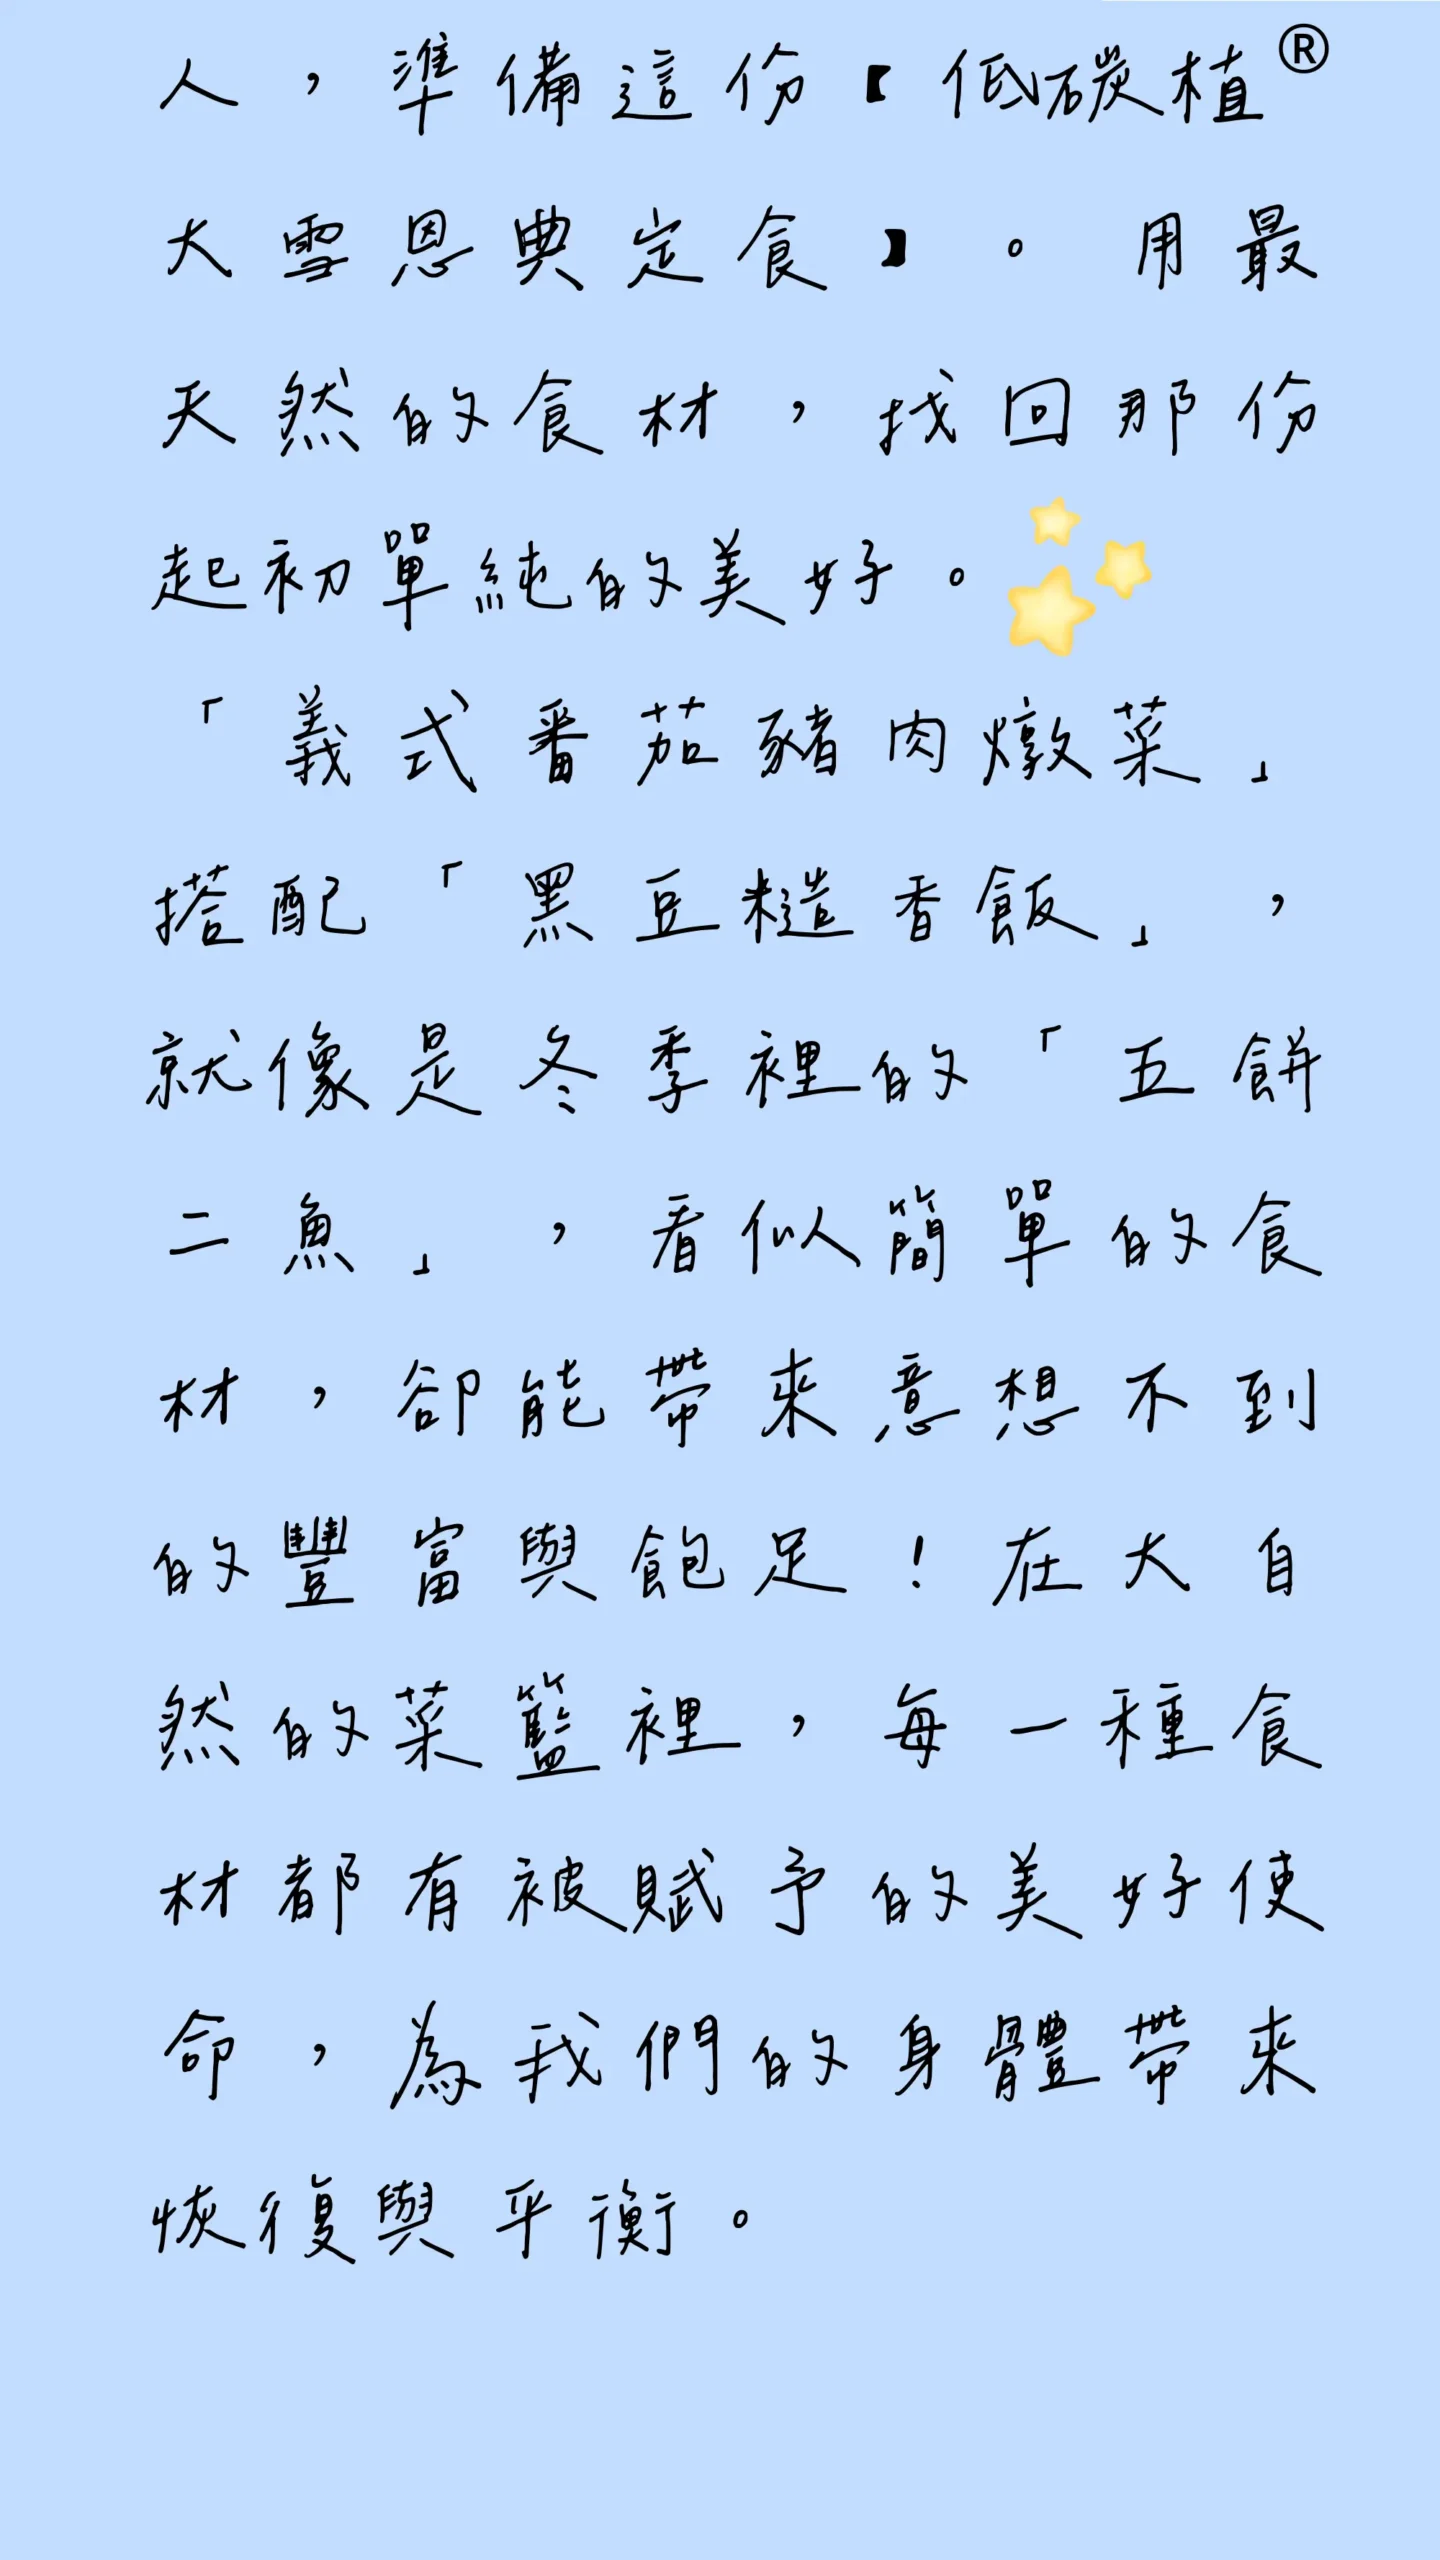 人，準備這份【低碳植®
大雪恩典定食】。用最
天然的食材，找回那份
起初單純的美好。
「義式番茄豬肉燉菜」
搭配「黑豆糙香飯」，
就像是冬季裡的「五餅
二魚」，看似簡單的食
材，卻能帶來意想不到
的豐富與飽足！在大自
然的菜籃裡，每一種食
材都有被賦予的美好使
命，為我們的身體帶來
恢復與平衡。